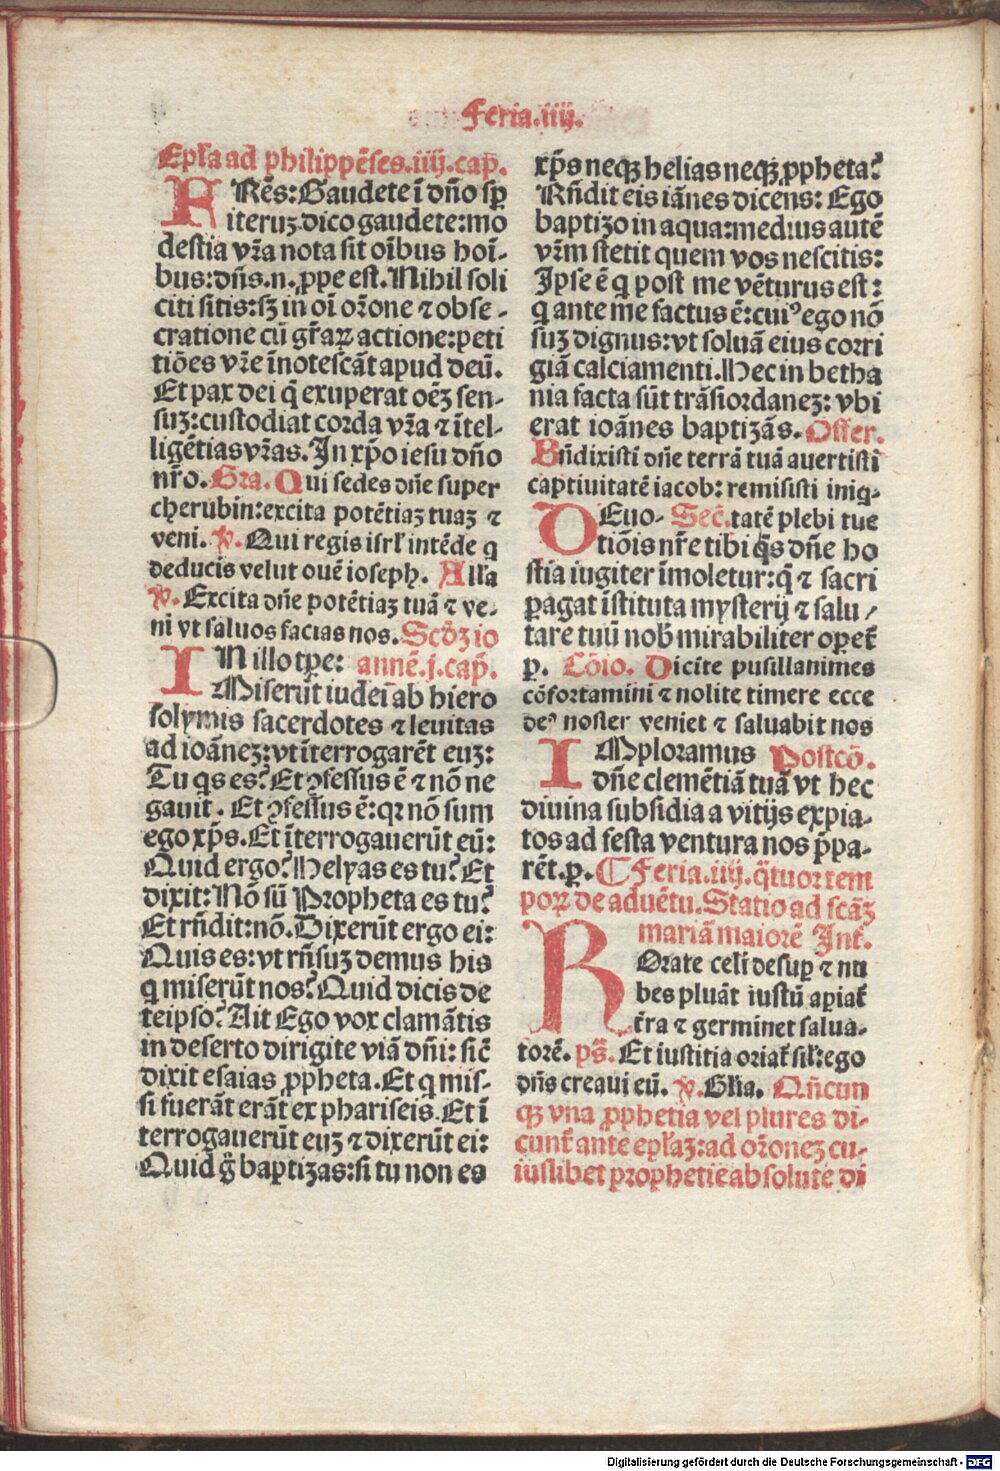 Feria.iiij.
Epl'a ad philippēses.iiij.cap̄.
FRēs: Gaudete ī dño sp̄
iteruꝫ dico gaudete: mo
destia vr̄a nota sit oībus hoī-
bus: dñs.n. ꝓpe est. Nihil soli
citi sitis: sꝫ in oī or̄one ⁊ obse-
cratione cū gr̄aꝝ actione: peti
tiōes vr̄e īnotescāt apud deū.
Et pax dei q̄ exuperat oēꝫ sen-
suꝫ: custodiat corda vr̄a ⁊ ītel-
ligētias vr̄as. In xp̄o iesu dño
nr̄o. Gra. Qui sedes dñe super
cherubin: excita potētiaꝫ tuaꝫ ⁊
veni. ꝟ. Qui regis isrl' intēde q
deducis velut ouē ioseph. All'a
ꝟ. Excita dñe potētiaꝫ tuā ⁊ ve-
ni vt saluos facias nos. Scd̄ꝫ io
IN illo tp̄e: annē.j.cap̄.
Miserūt iudei ab hiero
solymis sacerdotes ⁊ leuitas
ad ioāneꝫ: vt īterrogarēt euꝫ:
Tu qs es? Et ꝯfessus ē ⁊ nō ne
gauit. Et ꝯfessus ē: qꝛ nō sum
ego xp̄s. Et īterrogauerūt eū:
Quid ergo? Helyas es tu? Et
dixit: Nō sū Propheta es tu?
Et rñdit: nō. Dixerūt ergo ei:
Quis es: vt rñsuꝫ demus his
q miserūt nos? Quid dicis de
teipso? Ait Ego vox clamātis
in deserto dirigite viā dñi: sic̄
dixit esaias ꝓpheta. Et q mis-
si fuerāt erāt ex phariseis. Et ī
terrogauerūt euꝫ ⁊ dixerūt ei:
Quid g̊ baptizas: si tu non es
xp̄s neqꝫ helias neqꝫ ꝓpheta?
Rñdit eis iānes dicens: Ego
baptizo in aqua: medius autē
vr̄m stetit quem vos nescitis:
Ipse ē q post me vēturus est:
q ante me factus ē: cuiꝰ ego nō
suꝫ dignus: vt soluā eius corri
giā calciamenti. Hec in betha
nia facta sūt trāsiordaneꝫ: vbi
erat ioānes baptizās. Offer.
Bñdixisti dñe terrā tuā auertisti
captiuitatē iacob: remisisti iniq-
DEuo- Sec̄. tatē plebi tue
tiōis nr̄e tibi q̄s dñe ho
stia iugiter īmoletur: q̄ ⁊ sacri
ꝑagat īstituta mysterij ⁊ salu/
tare tuū nob̄ mirabiliter oꝑet̄
ꝑ. Cōio. Dicite pusillanimes
cōfortamini ⁊ nolite timere ecce
deꝰ noster veniet ⁊ saluabit nos
IMploramus Postcō.
dñe clemētiā tuā vt hec
diuina subsidia a vitijs expia-
tos ad festa ventura nos p̄pa-
rēt. ꝑ. ⸿ Feria.iiij. q̄tuor tem
poꝝ de aduētu. Statio ad scāꝫ
mariā maiorē Int̄.
ROrate celi desuꝑ ⁊ nu
bes pluāt iustū aꝑiat̄
t̄ra ⁊ germinet salua-
torē. ps̄. Et iustitia oriat̄ sil': ego
dñs creaui eū. ꝟ. Gl'ia. Qñcun
qꝫ vna ꝓphetia vel plures di-
cunt̄ ante epl'aꝫ: ad or̄oneꝫ cu-
iuslibet prophetie absolute di
Digitalisierung gefördert durch die Deutsche Forschungsgemeinschaft - DFG